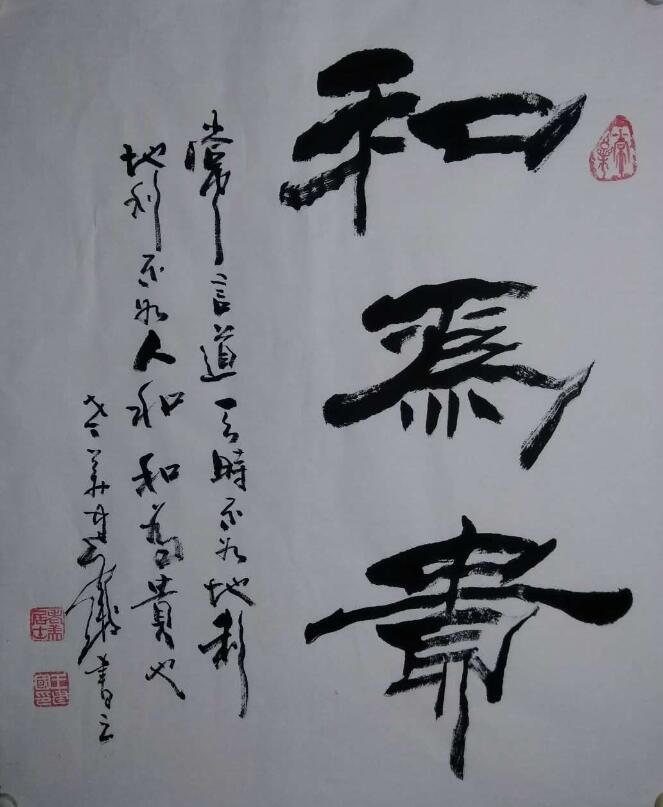 和為貴
常言道天時不如地利
地利不如人和和為貴也
書之